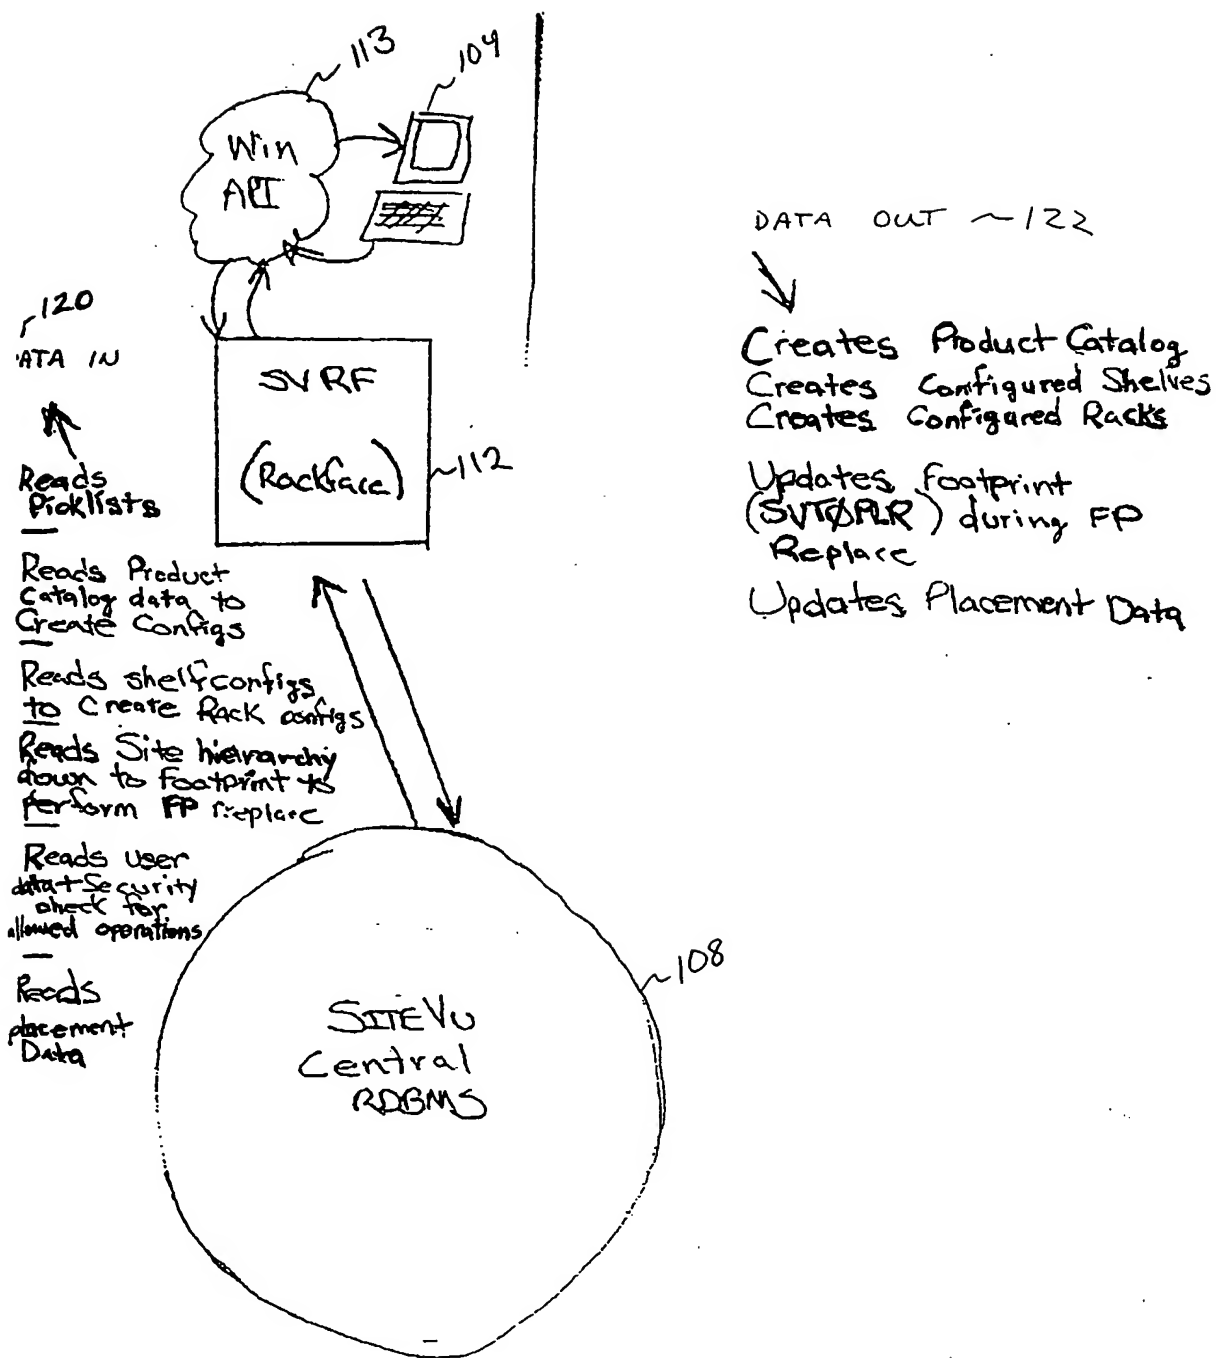 113
104
Win
API
120
ATA IN
SVRF
(Rackface)
112
Reads
Picklists
Reads Product
Catalog data to
Create Configs
Reads shelf configs
to Create Rack configs
Reads Site hierarchy
down to Footprint to
Perform FP replace
Reads user
data + Security
check for
allowed operations
Reads
placement
Data
108
SITEVU
Central
RDBMS
DATA OUT ~122
Creates Product Catalog
Creates Configured Shelves
Creates Configured Racks
Updates Footprint
(SVTØPLR) during FP
Replace
Updates Placement Data